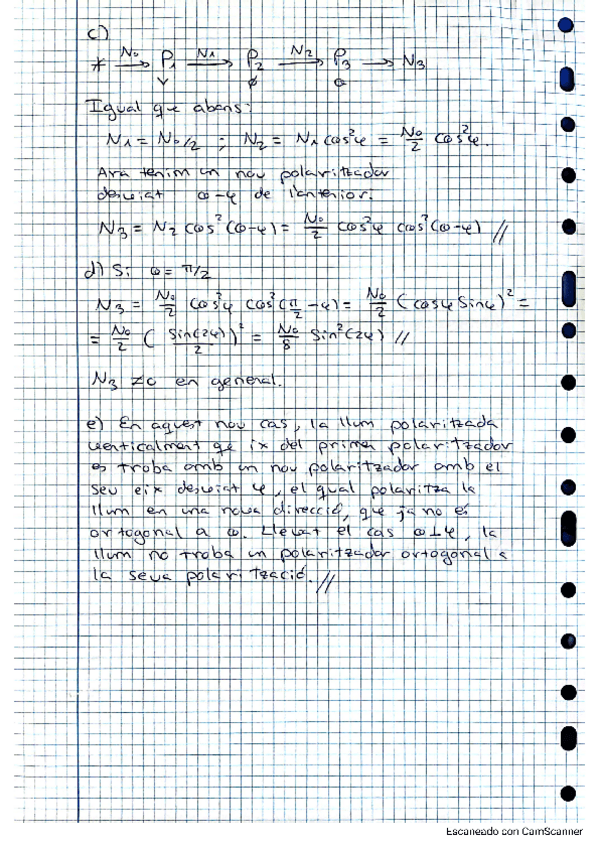 c)
* N₀→ P₁ N₁→ P₂ N₂→ P₃ → N₃
V φ θ
Igual que abans:
N₁ = N₀/2 ; N₂ = N₁ cos²φ = N₀/2 cos²φ.
Ara tenim un nou polaritzador
desviat θ-φ de l'anterior.
N₃ = N₂ cos²(θ-φ) = N₀/2 cos²φ cos²(θ-φ) //
d) Si θ = π/2
N₃ = N₀/2 cos²φ cos²(π/2 - φ) = N₀/2 (cosφ sinφ)² =
= N₀/2 (sin(2φ)/2)² = N₀/8 sin²(2φ) //
N₃ ≠ 0 en general.
e) En aquest nou cas, la llum polaritzada
verticalment que ix del primer polaritzador
es troba amb un nou polaritzador amb el
seu eix desviat φ, el qual polaritza la
llum en una nova direcció, que ja no és
ortogonal a θ. Llevat el cas θ⊥φ, la
llum no troba un polaritzador ortogonal a
la seva polarització. //
Escaneado con CamScanner